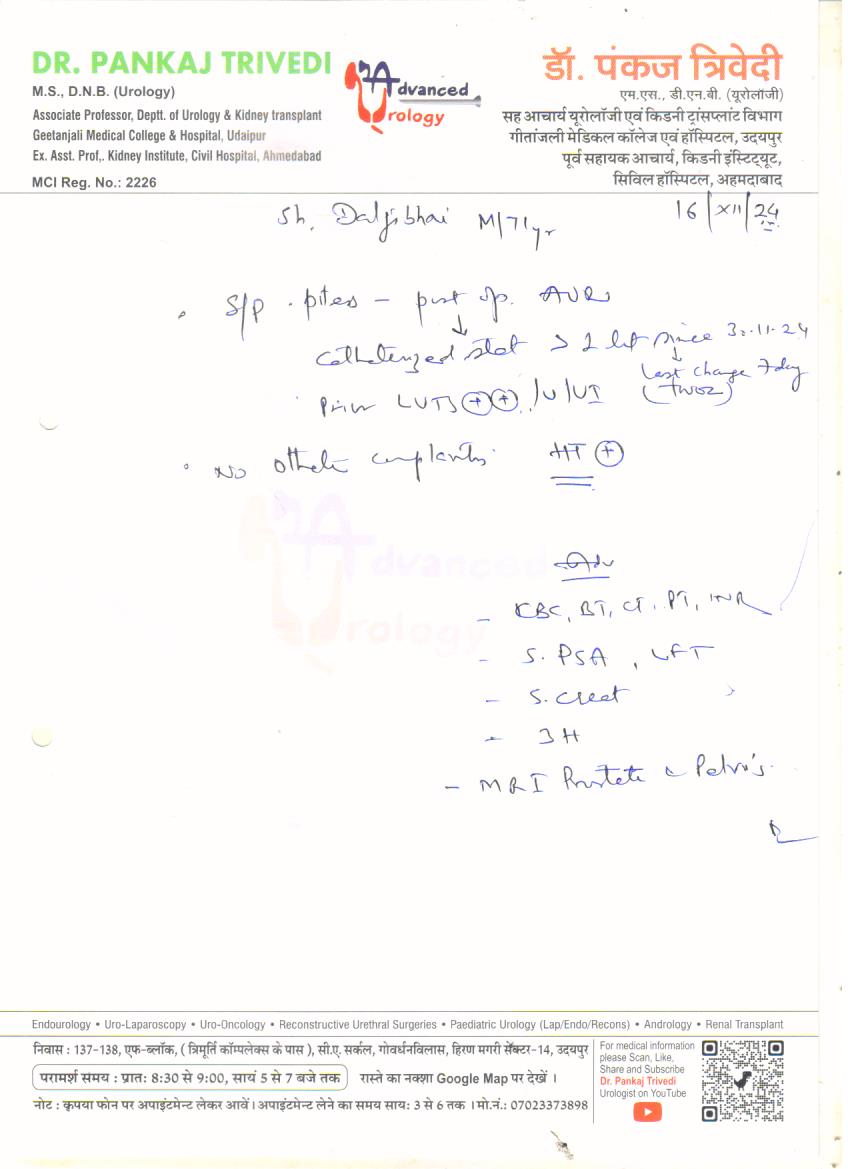 DR. PANKAJ TRIVEDI
M.S., D.N.B. (Urology)
Associate Professor, Deptt. of Urology & Kidney transplant
Geetanjali Medical College & Hospital, Udaipur
Ex. Asst. Prof,. Kidney Institute, Civil Hospital, Ahmedabad
MCI Reg. No.: 2226
Advanced
Urology
डॉ. पंकज त्रिवेदी
एम.एस., डी.एन.बी. (यूरोलॉजी)
सह आचार्य यूरोलॉजी एवं किडनी ट्रांसप्लांट विभाग
गीतांजली मेडिकल कॉलेज एवं हॉस्पिटल, उदयपुर
पूर्व सहायक आचार्य, किडनी इंस्टिट्यूट,
सिविल हॉस्पिटल, अहमदाबाद
16/XII/24
Sh. Daljibhai M/71yr
S/P piles - post op. AUR
Catheterized stat > 1 lit since 30.11.24
Last change 7day
Prior LUTS ++ /U/UI (TWOC)
No other complaints HT +
Adv
- CBC, BT, CT, PT, INR
- S. PSA, LFT
- S. Creat
- 3H
- MRI Prostate Pelvis
Advanced
Urology
Endourology • Uro-Laparoscopy • Uro-Oncology • Reconstructive Urethral Surgeries • Paediatric Urology (Lap/Endo/Recons) • Andrology • Renal Transplant
निवास : 137-138, एफ-ब्लॉक, ( त्रिमूर्ति कॉम्पलेक्स के पास ), सी.ए. सर्कल, गोवर्धनविलास, हिरण मगरी सेक्टर-14, उदयपुर
परामर्श समय : प्रातः 8:30 से 9:00, सायं 5 से 7 बजे तक रास्ते का नक्शा Google Map पर देखें ।
नोट : कृपया फोन पर अपाइंटमेन्ट लेकर आवें। अपाइंटमेन्ट लेने का समय सायः 3 से 6 तक । मो.नं.: 07023373898
For medical information
please Scan, Like,
Share and Subscribe
Dr. Pankaj Trivedi
Urologist on YouTube